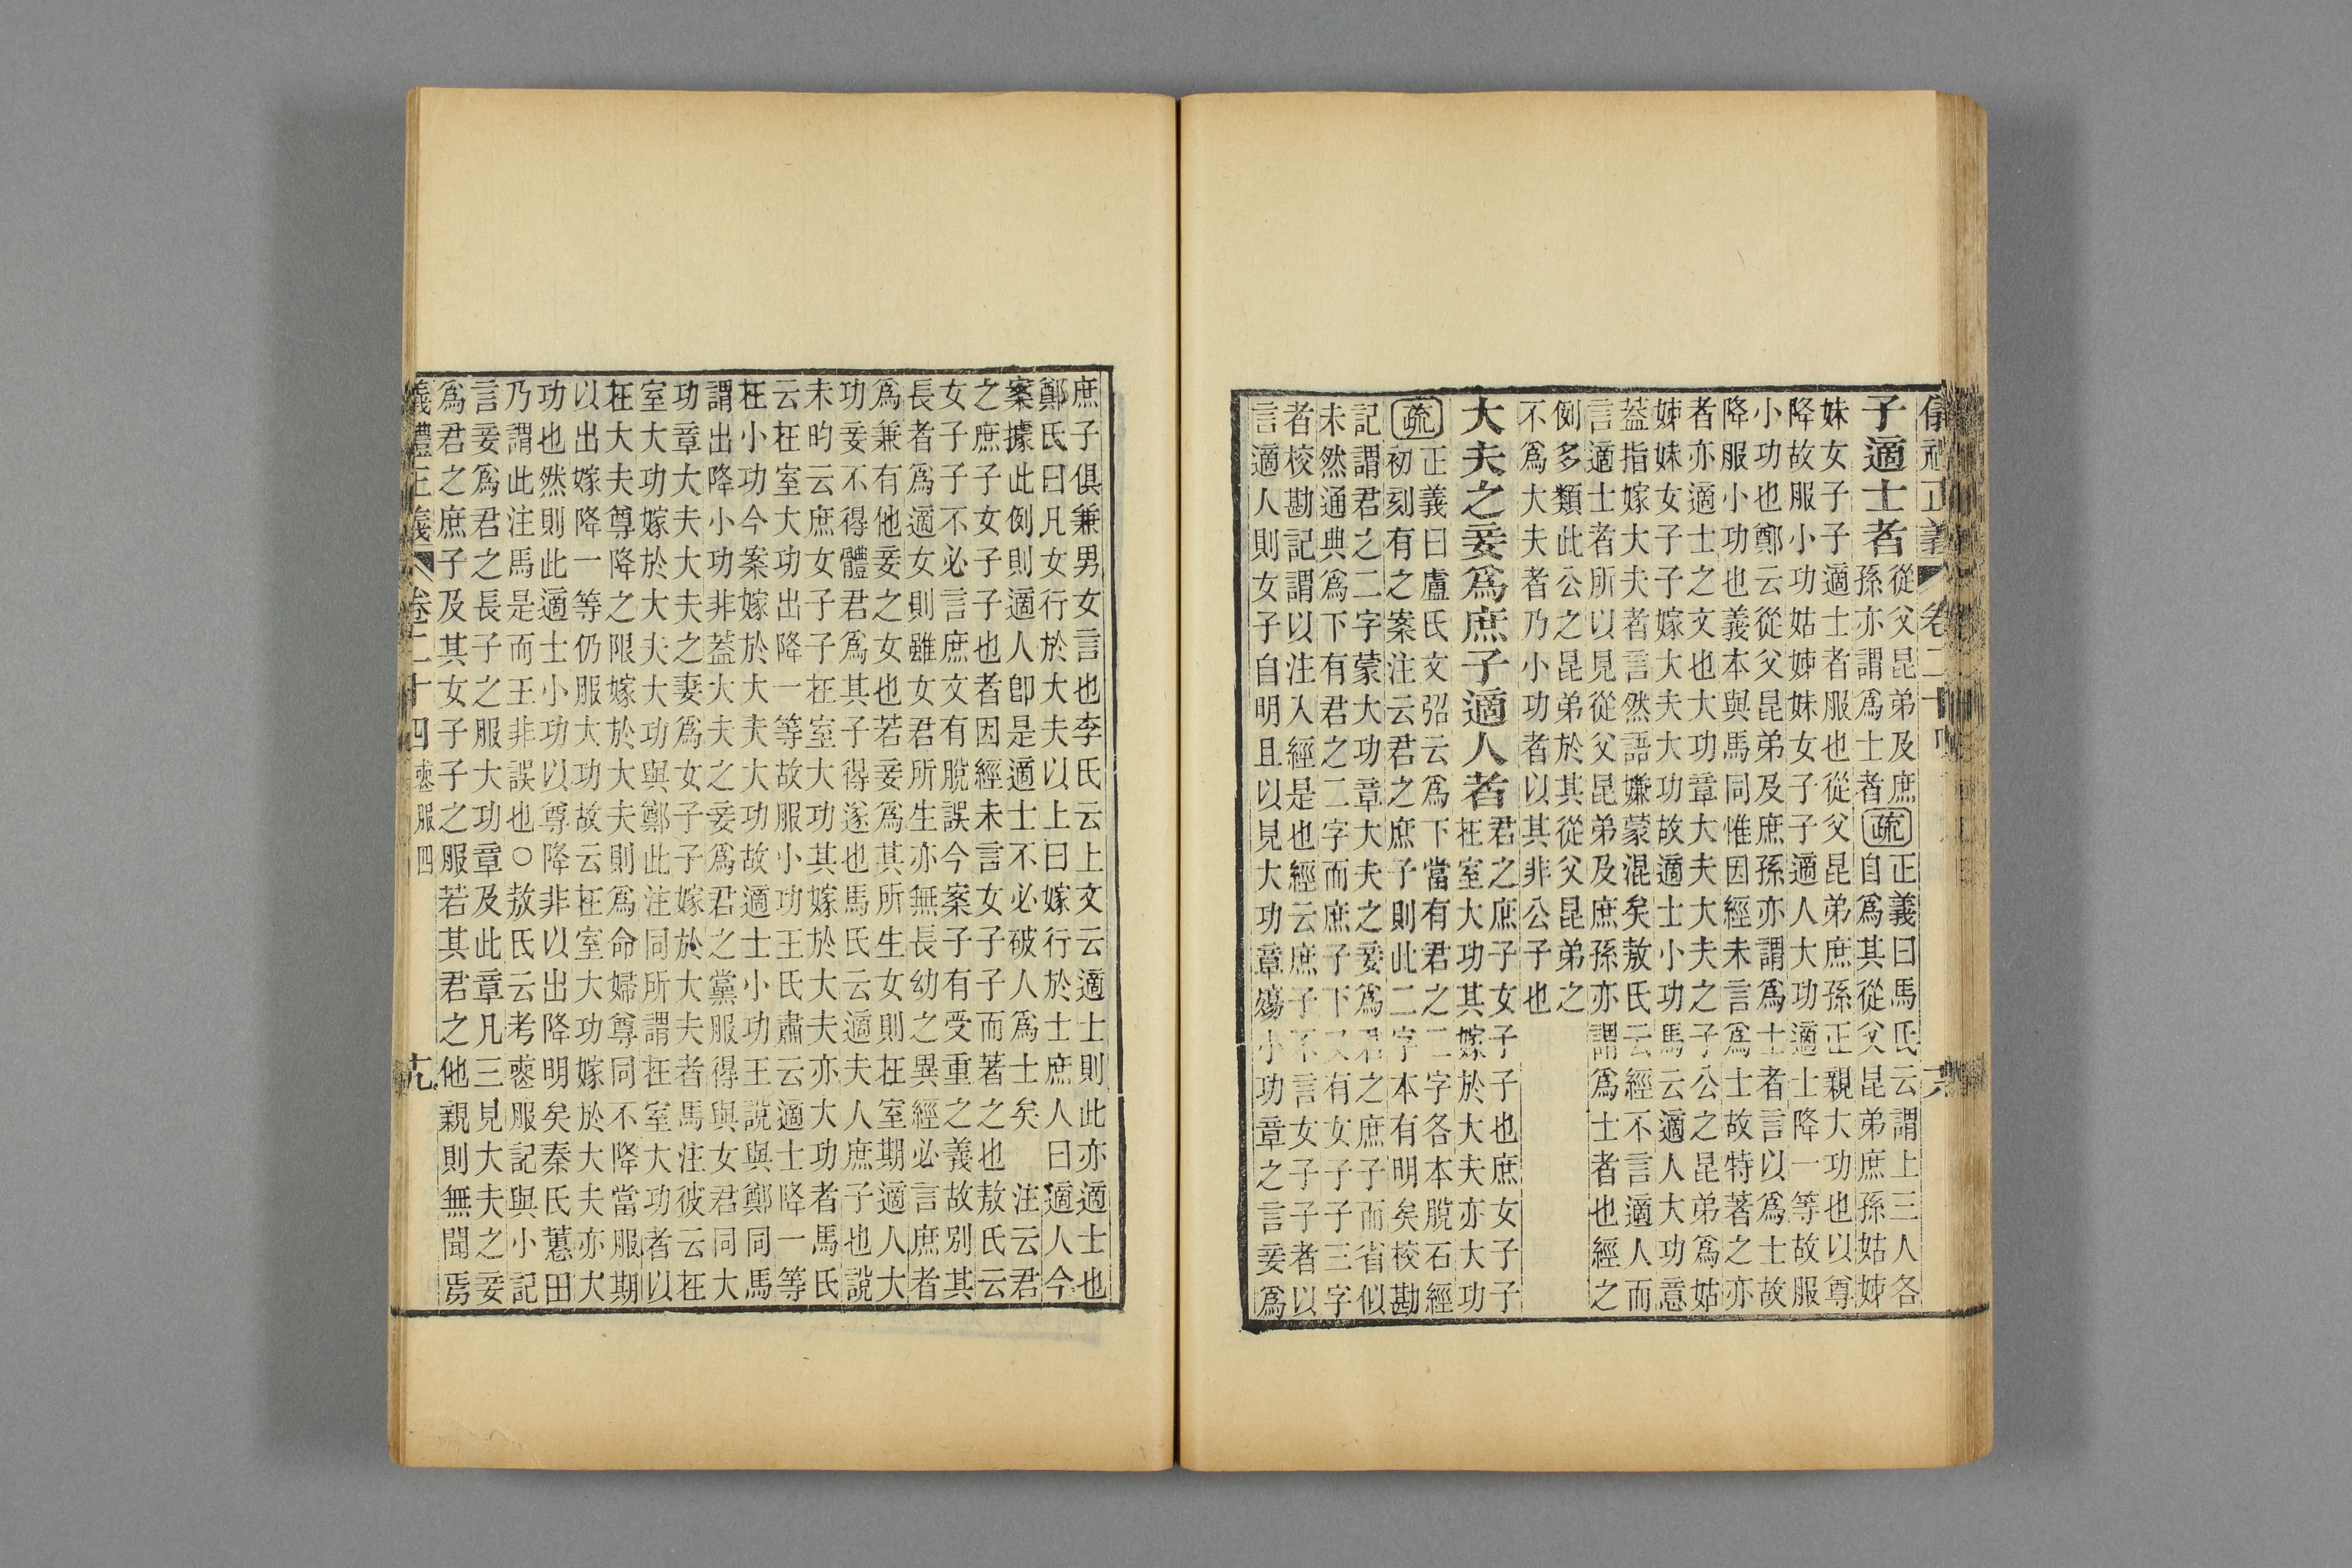 儀禮正義 卷二十四
子適士者 從父昆弟及庶
孫亦謂爲士者 疏 正義曰馬氏云謂上三人各
自爲其從父昆弟庶孫姑姊
妹女子子適士者服也從父昆弟庶孫正親大功也以尊
降故服小功姑姊妹女子子適人大功適士降一等故服
小功也鄭云從父昆弟及庶孫亦謂爲士者言以爲士故
降服小功也義本與馬同惟因經未言爲士故特著之亦
者亦適士之文也大功章大夫大夫之子公之昆弟爲姑
姊妹女子子嫁大夫大功故適士小功馬云適人大功意
蓋指嫁大夫者言然語嫌蒙混矣敖氏云經不言適人而
言適士者所以見從父昆弟及庶孫亦謂爲士者也經之
例多類此公之昆弟於其從父昆弟之
不爲大夫者乃小功者以其非公子也
大夫之妾爲庶子適人者 君之庶子女子子也庶女子子
在室大功其嫁於大夫亦大功
疏 正義曰盧氏文弨云爲下當有君之二字各本脫石經
初刻有之案注云君之庶子則此二字本有明矣校勘
記謂君之二字蒙大功章大夫之妾爲君之庶子而省似
未然通典爲下有君之二字而庶子下又有女子子三字
者校勘記謂以注入經是也經云庶子不言女子子者以
言適人則女子自明且以見大功章殤小功章之言妾爲
庶子俱兼男女言也李氏云上文云適士則此亦適士也
鄭氏曰凡女行於大夫以上曰嫁行於士庶人曰適人今
案據此例則適人卽是適士不必破人爲士矣 注云君
之庶子女子子也者因經未言女子子而著之也 敖氏云
女子子不必言庶文有脫誤今案子有受重之義故別其
長者爲適女則雖女君所生亦無長幼之異經必言庶者
爲兼有他妾之女也若妾爲其所生女則在室期適人大
功妾不得體君爲其子得遂也馬氏云適夫人庶子也說
未昀云庶女子子在室大功其嫁於大夫亦大功者馬氏
云在室大功出降一等故服小功王氏肅云適士降一等
在小功今案嫁於大夫大功故適士小功王說與鄭同馬
謂出降小功非蓋大夫之妾爲君之黨服得與女君同大
功章大夫大夫之妻爲女子子嫁於大夫者馬注彼云在
室大功嫁於大夫大功與鄭此注同所謂在室大功者以
在大夫尊降之限嫁於大夫則爲命婦尊同不降當服期
以出嫁降一等仍服大功故云在室大功嫁於大夫亦大
功也然則此適士小功以尊降非以出降明矣秦氏蕙田
乃謂此注馬是而王非誤也○敖氏云考喪服記與小記
言妾爲君之長子之服大功章及此章凡三見大夫之妾
爲君之庶子及其女子子之服若其君之他親則無聞焉
義禮正義 卷二十四 喪服四 十九